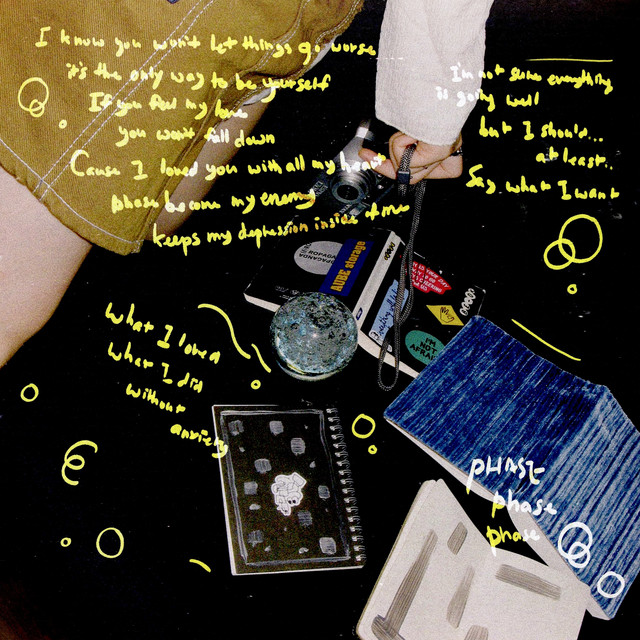 I know you won't let things go worse
it's the only way to be yourself
If you feel my love
you won't fall down
Cause I loved you with all my heart
phase become my enemy
keeps my depression inside of me
I'm not sure everything
is going well
but I should...
at least..
Say what I want
what I loved
what I did
without
anxiety
PROPAGANDA
I'M NOT
AFRAI
PHASE
phase
phase